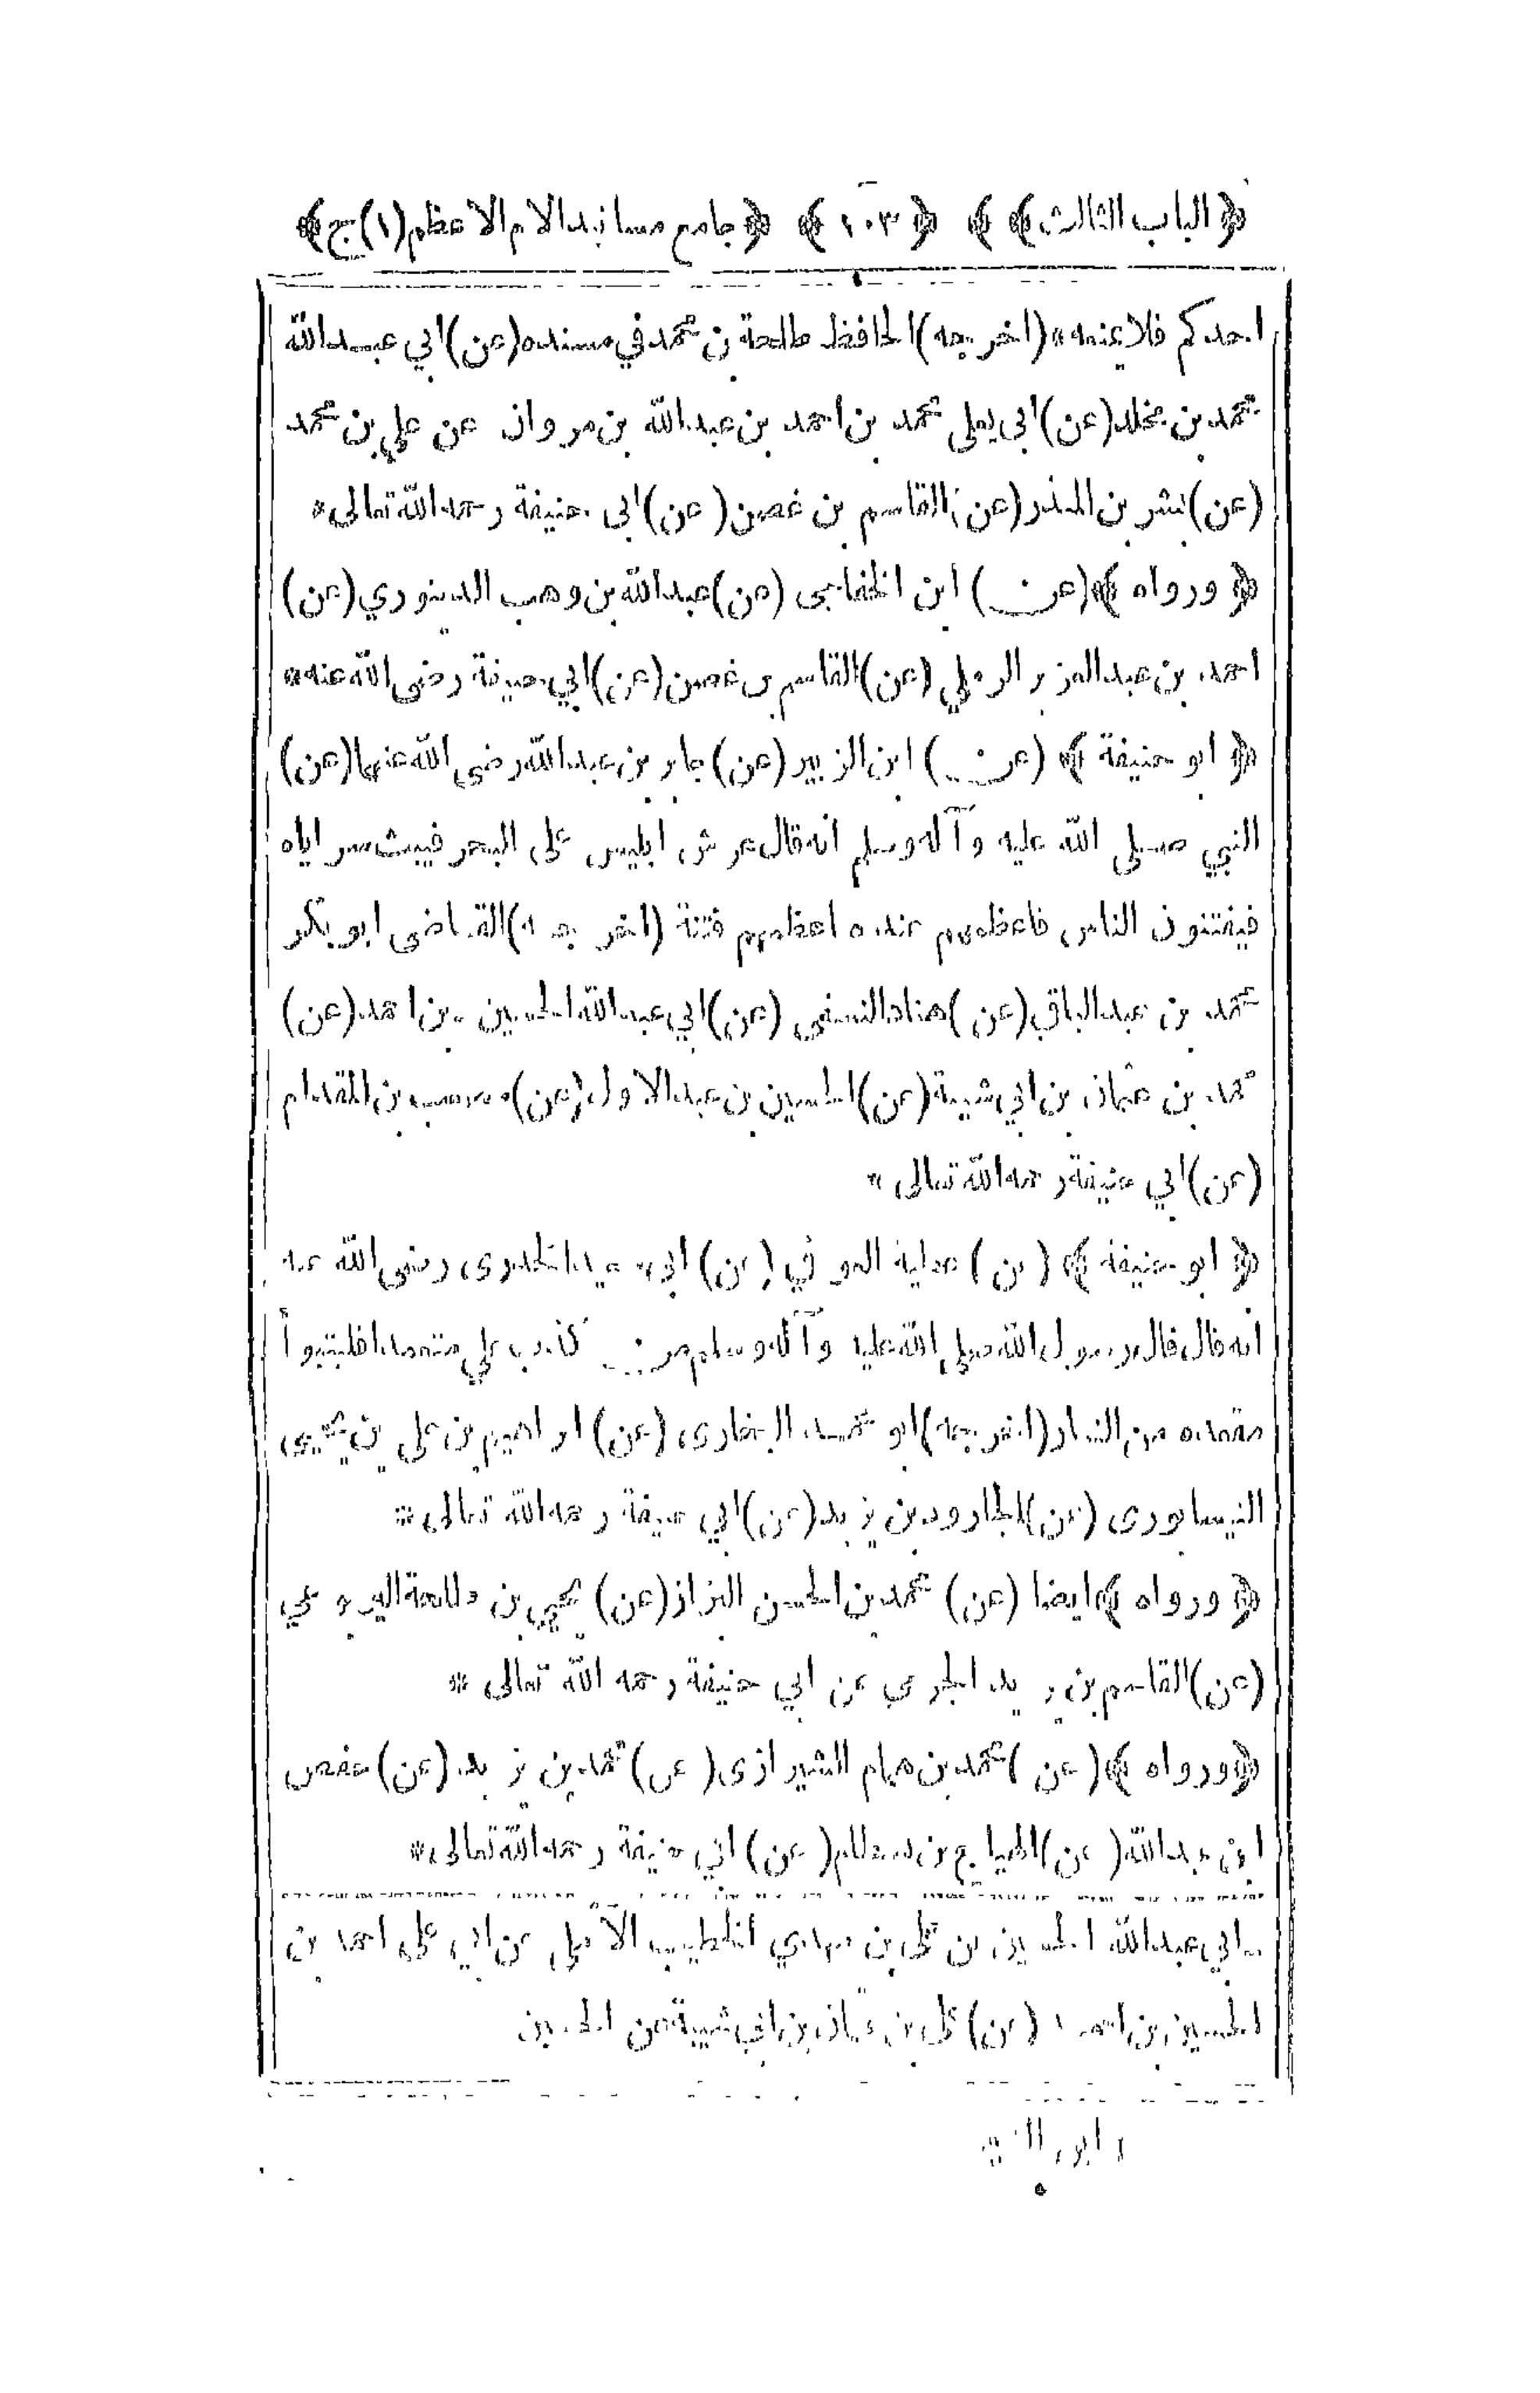 ﴿الباب الثالث﴾ ﴿١٠٣﴾ ﴿جامع مسانيد الامام الاعظم (١) ج﴾
احدكم فلا يمنعه * (اخرجه) الحافظ طلحة بن محمد في مسنده (عن) ابي عبد الله
محمد بن مخلد (عن) ابى يعلى محمد بن احمد بن عبد الله بن مروان عن علي بن محمد
(عن) بشر بن المنذر (عن) القاسم بن غصن (عن) ابى حنيفة رحمه الله تعالى *
﴿ورواه﴾ (عن) ابن (عن) عبد الله بن وهب الدينوري (عن)
احمد بن عبد العزيز الرملي (عن) القاسم بن غصن (عن) ابي حنيفة رضى الله عنه *
﴿ابو حنيفة﴾ (عن) ابن الزبير (عن) جابر بن عبد الله رضى الله عنهما (عن)
النبي صلى الله عليه وآله وسلم انه قال عرش ابليس على البحر فيبث سراياه
فيفتنون الناس فاعظمهم عنده اعظمهم فتنة (اخرجه) القاضى ابو بكر
محمد بن عبد الباقي (عن) هناد النسفى (عن) ابي عبد الله الحسين بن احمد (عن)
محمد بن عثمان بن ابي شيبة (عن) الحسين بن عبد الاول (عن) مصعب بن المقدام
(عن) ابي حنيفة رحمه الله تعالى *
﴿ابو حنيفة﴾ (عن) عطية العوفي (عن) ابى سعيد الخدرى رضى الله عنه
انه قال قال رسول الله صلى الله عليه وآله وسلم من كذب علي متعمدا فليتبوأ
مقعده من النار (اخرجه) ابو محمد البخارى (عن) ابراهيم بن على بن يحيى
النيسابورى (عن) الجارود بن يزيد (عن) ابي حنيفة رحمه الله تعالى *
﴿ورواه﴾ ايضا (عن) محمد بن الحسن البزاز (عن) يحيى بن طلحة اليربوعي
(عن) القاسم بن يزيد الجرمي عن ابي حنيفة رحمه الله تعالى *
﴿ورواه﴾ (عن) محمد بن همام الشيرازى (عن) محمد بن يزيد (عن) حفص
ابن عبد الله (عن) الهياج بن بسطام (عن) ابي حنيفة رحمه الله تعالى *
ابي عبد الله الحسين بن على بن مهدي الخطيب عن ابي على احمد بن
الحسين بن احمد (عن) بن عثمان بن ابى شيبة عن الحسين